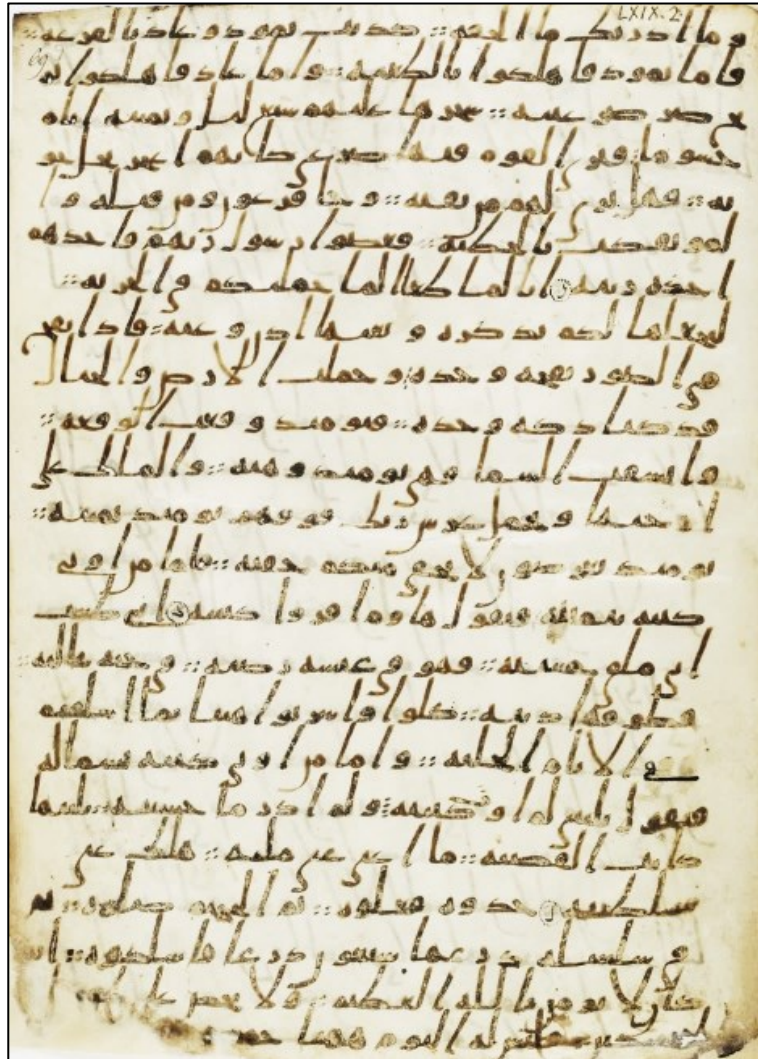 LXIX. 2
69
وما ادريك ما الحقه :: كذبت ثمود وعاد بالقرعه ::
فاما ثمود فاهلكوا بالطغيه :: واما عاد فاهلكوا بر
يح صرصر عتيه :: سخرها عليهم سبع ليل وثمنيه ايام
حسوما فترى القوم فيها صرعى كانهم اعجز نخل خو
يه :: فهل ترى لهم من بقيه :: وجا فرعون ومن قبله وا
لموتفكت بالخطيه :: فعصوا رسول ربهم فاخذهم
اخذه ربيه انا لما طغا الما حملنكم في الجريه ::
لنجعلها لكم تذكره وتعيها اذن وعيه :: فاذا نفخ
في الصور نفخه وحده وحملت الارض والجبال
فدكتا دكه وحده :: فيومئذ وقعت الوقعه ::
وانشقت السما فهي يومئذ وهيه :: والملك على
ارجيها ويحمل عرش ربك فوقهم يومئذ ثمنيه ::
يومئذ تعرضون لا تخفى منكم خفيه :: فاما من اوتي
كتبه بيمينه فيقول هاوم اقروا كتبيه اني ظننت
اني ملق حسبيه :: فهو في عيشه رضيه :: في جنه عاليه ::
قطوفها دنيه :: كلوا واشربوا هنيا بما اسلفتم
في الايام الخليه :: واما من اوتي كتبه بشماله
فيقول يليتني لم اوت كتبيه :: ولم ادر ما حسبيه :: يليتها
كانت القضيه :: ما اغنى عني ماليه :: هلك عني
سلطنيه خذوه فغلوه :: ثم الجحيم صلوه :: ثم
في سلسله ذرعها سبعون ذرعا فاسلكوه :: انه
كان لا يومن بالله العظيم :: ولا يحض على
فليس له اليوم ههنا حميم